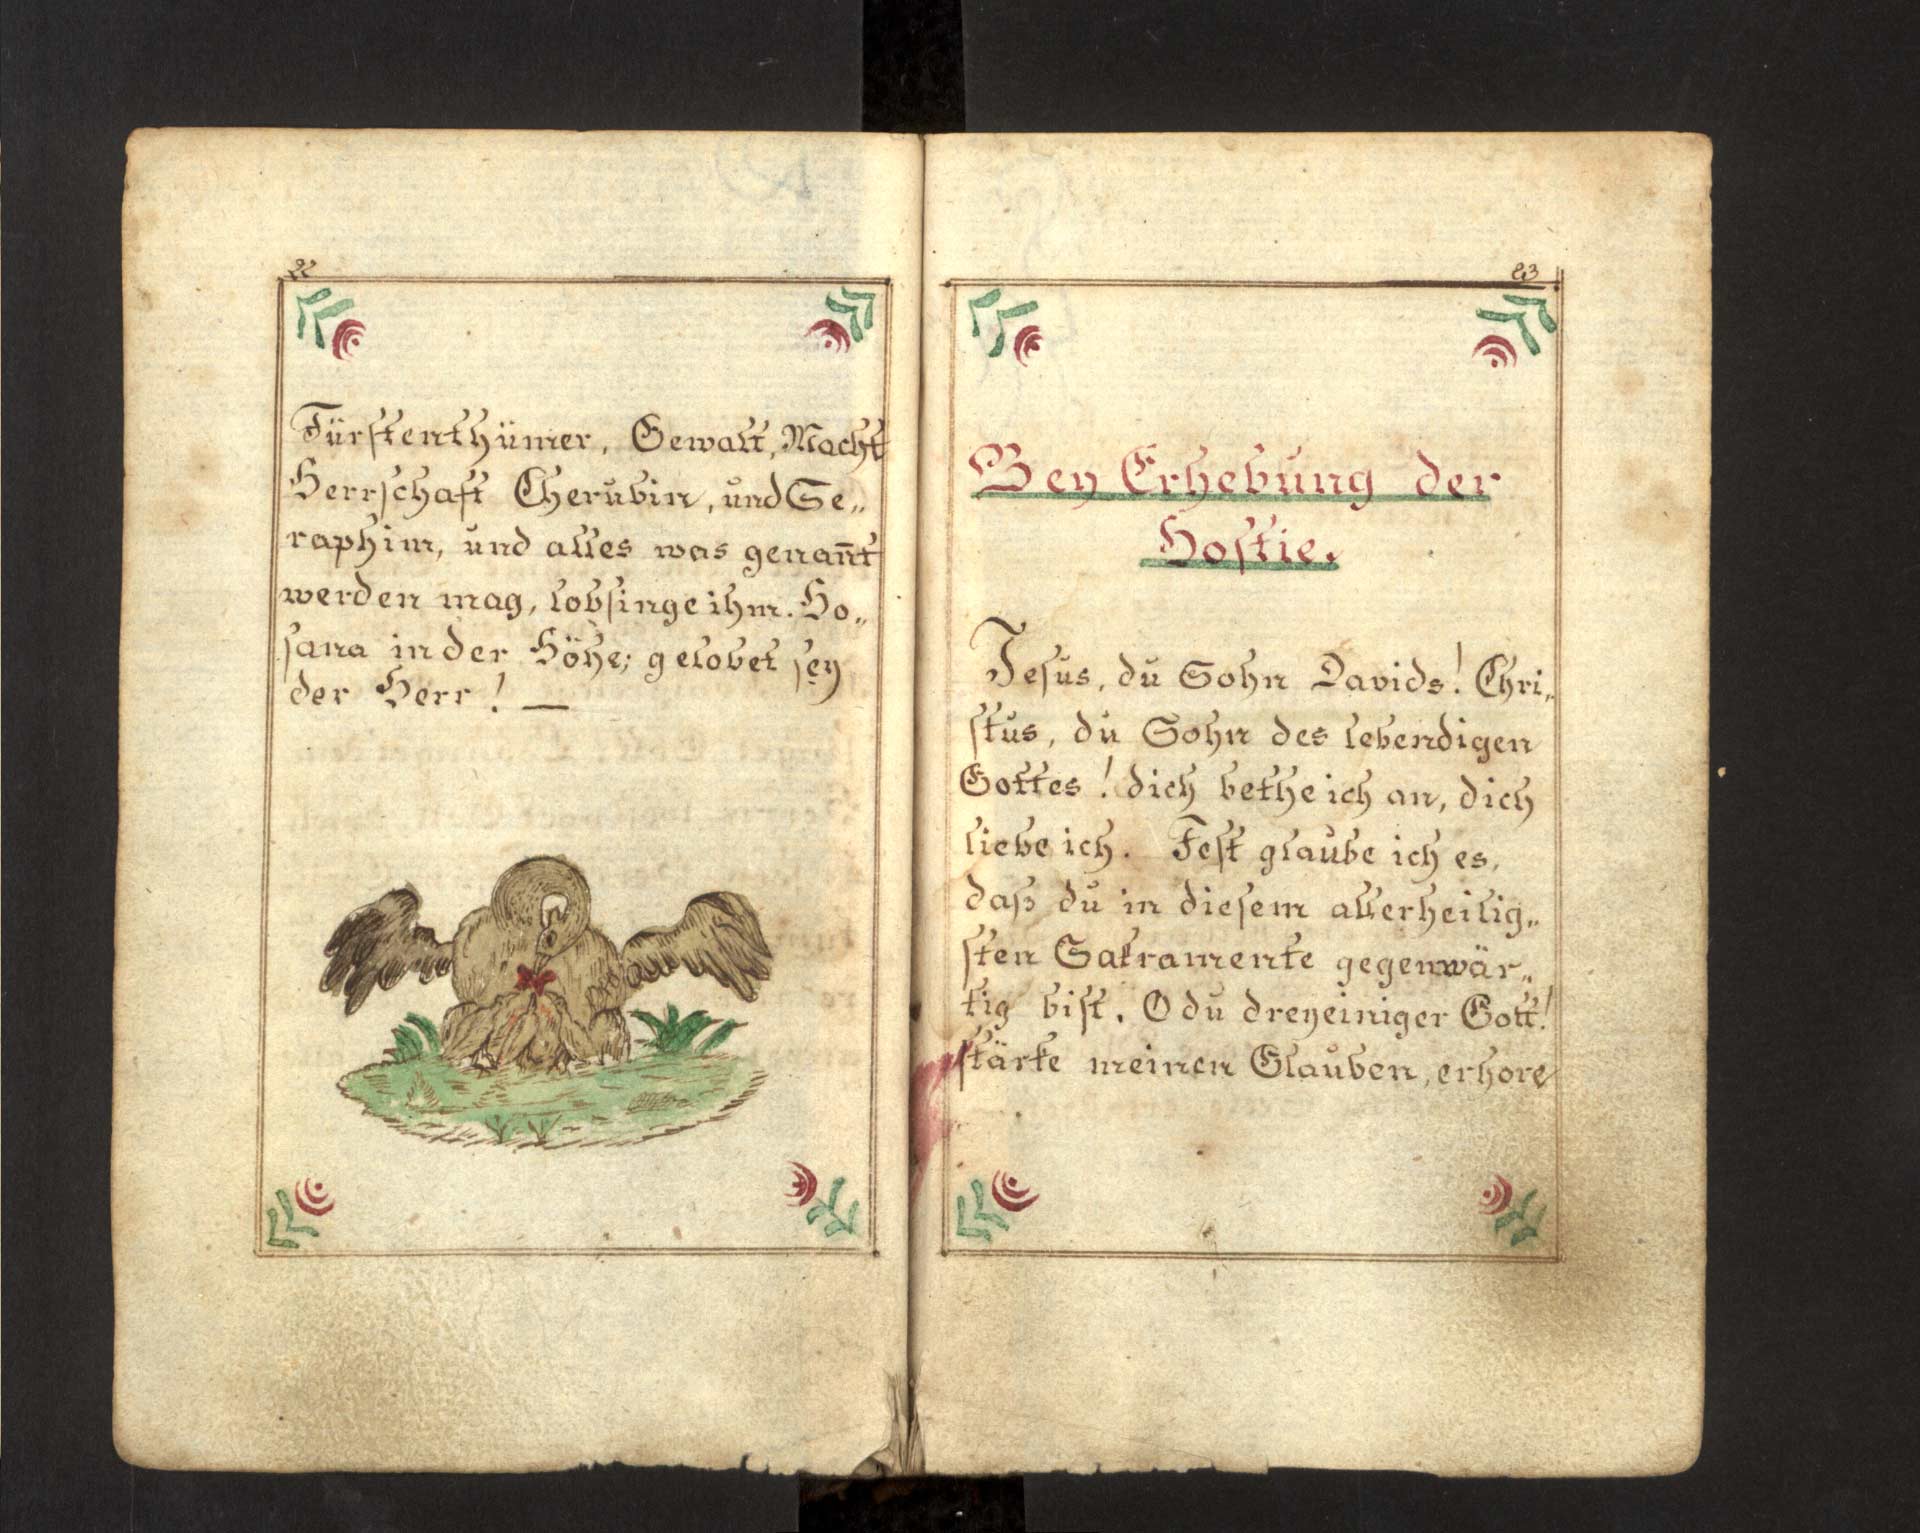 22
Fürstenthümer, Gewalt, Macht
Herrschaft Cherubin, und Se„
raphim, und alles was genan̄t
werden mag, lobsinge ihm. Ho„
sana in der Höhe; gelobet seÿ
der Herr! —
23
Beÿ Erhebung der
Hostie.
Jesus, du Sohn Davids! Chri„
stus, du Sohn des lebendigen
Gottes! dich bethe ich an, dich
liebe ich. Fest glaube ich es,
daß du in diesem allerheilig„
sten Sakramente gegenwär„
tig bist. O du dreyeiniger Gott!
stärke meinen Glauben, erhore